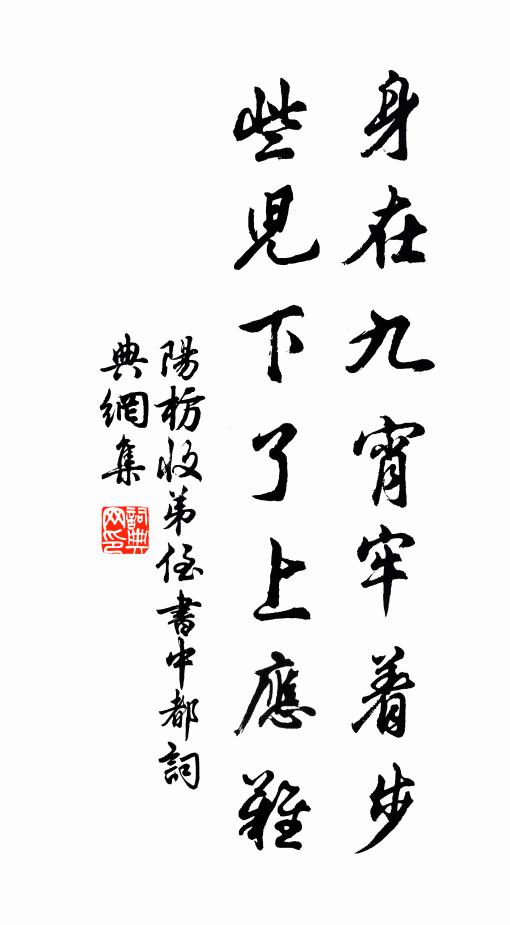 身在九霄牢着步
些兒下了上應難
陽枋收弟侄書中都詞
典網集
詞典
网印